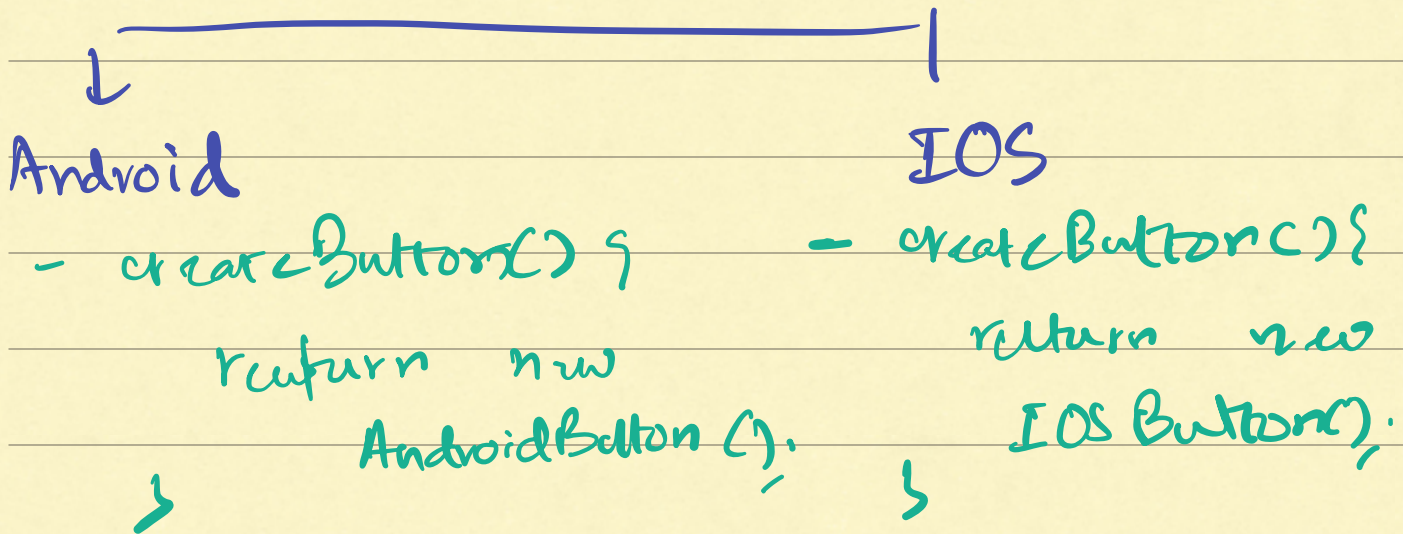 Android
IOS
- createButton() {
return new
AndroidButton();
}
- createButton() {
return new
IOSButton();
}